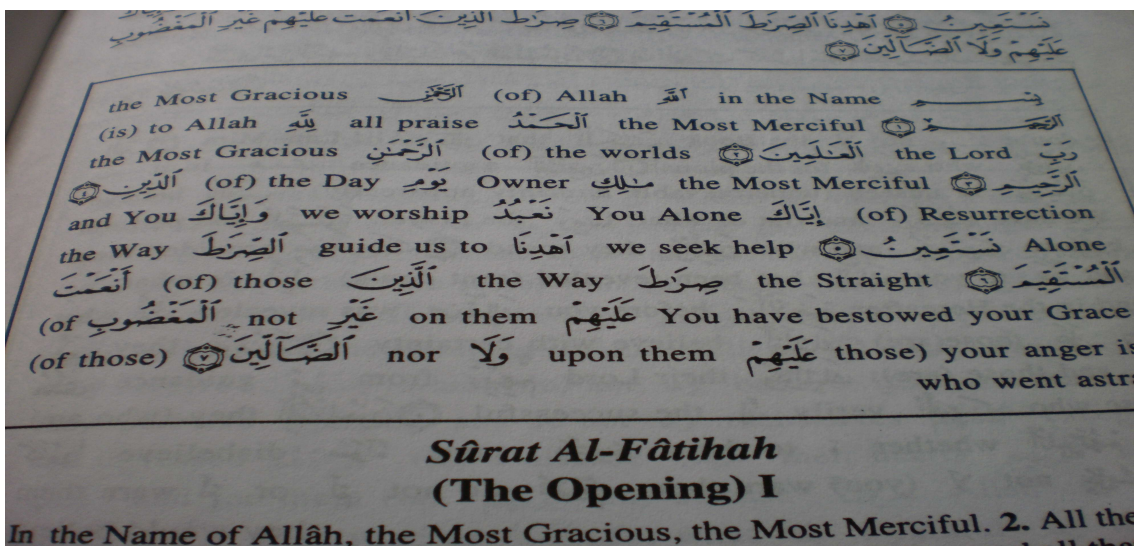 نَسْتَعِينُ ٥ ٱهْدِنَا ٱلصِّرَٰطَ ٱلْمُسْتَقِيمَ ٦ صِرَٰطَ ٱلَّذِينَ أَنْعَمْتَ عَلَيْهِمْ غَيْرِ ٱلْمَغْضُوبِ
عَلَيْهِمْ وَلَا ٱلضَّآلِّينَ ٧
بِسْمِ in the Name ٱللَّهِ (of) Allah ٱلرَّحْمَٰنِ the Most Gracious
ٱلرَّحِيمِ ١ the Most Merciful ٱلْحَمْدُ all praise لِلَّهِ (is) to Allah
رَبِّ the Lord ٱلْعَٰلَمِينَ ٢ (of) the worlds ٱلرَّحْمَٰنِ the Most Gracious
ٱلرَّحِيمِ ٣ the Most Merciful مَٰلِكِ Owner يَوْمِ (of) the Day ٱلدِّينِ ٤
(of) Resurrection إِيَّاكَ You Alone نَعْبُدُ we worship وَإِيَّاكَ and You
Alone نَسْتَعِينُ ٥ we seek help ٱهْدِنَا guide us to ٱلصِّرَٰطَ the Way
ٱلْمُسْتَقِيمَ ٦ the Straight صِرَٰطَ the Way ٱلَّذِينَ (of) those أَنْعَمْتَ
You have bestowed your Grace عَلَيْهِمْ on them غَيْرِ not ٱلْمَغْضُوبِ (of
those) your anger is عَلَيْهِمْ upon them وَلَا nor ٱلضَّآلِّينَ ٧ (of those)
who went
Sûrat Al-Fâtihah
(The Opening) I
In the Name of Allâh, the Most Gracious, the Most Merciful. 2. All the